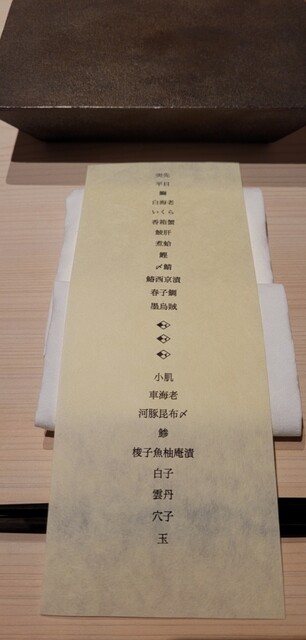 平目
鰤
白海老
いくら
香箱蟹
鮟肝
煮蛤
鰹
〆鯖
鰆西京漬
春子鯛
墨烏賊
小肌
車海老
河豚昆布〆
鯵
梭子魚柚庵漬
白子
雲丹
穴子
玉